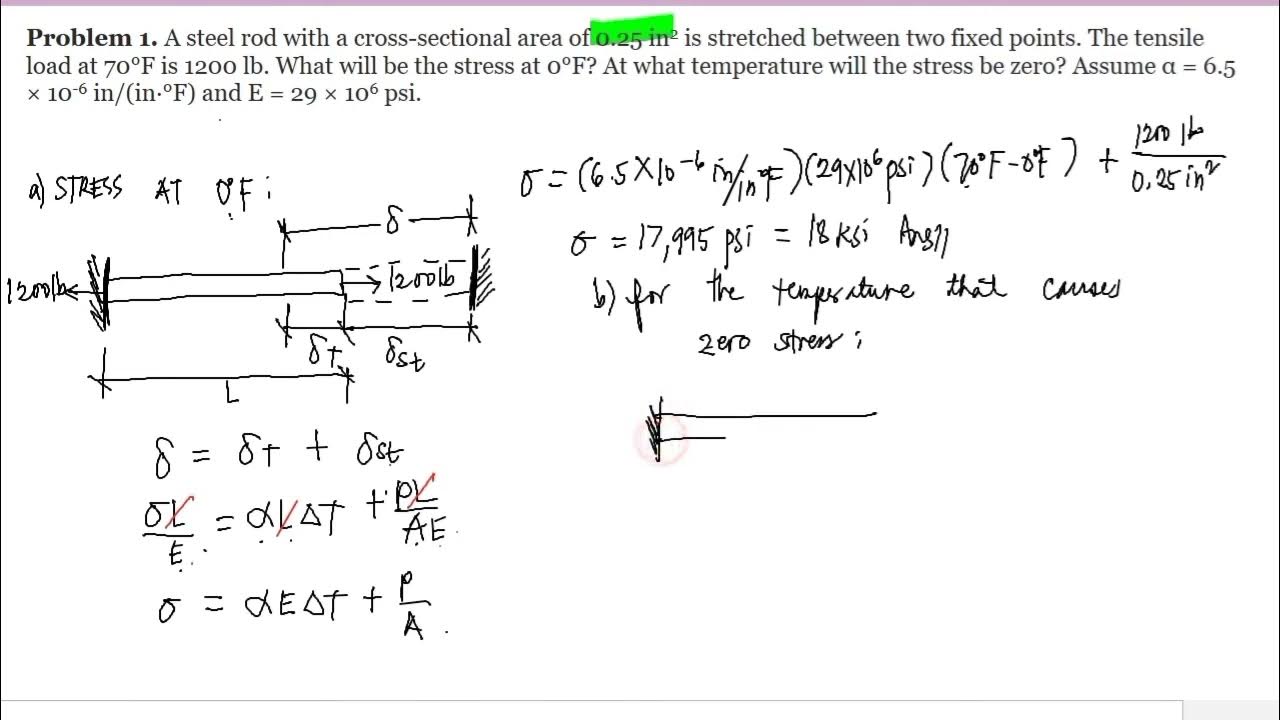 Problem 1. A steel rod with a cross-sectional area of 0.25 in² is stretched between two fixed points. The tensile
load at 70°F is 1200 lb. What will be the stress at 0°F? At what temperature will the stress be zero? Assume α = 6.5
× 10⁻⁶ in/(in·°F) and E = 29 × 10⁶ psi.
a) STRESS AT 0°F :
δ
1200lb
1200lb
δT
δst
L
δ = δT + δst
σL/E = αLΔT + PL/AE
σ = αEΔT + P/A
σ = (6.5×10⁻⁶ in/in°F)(29×10⁶ psi)(70°F-0°F) + 1200 lb/0.25 in²
σ = 17,995 psi = 18 ksi Ans//
b) for the temperature that causes
zero stress :